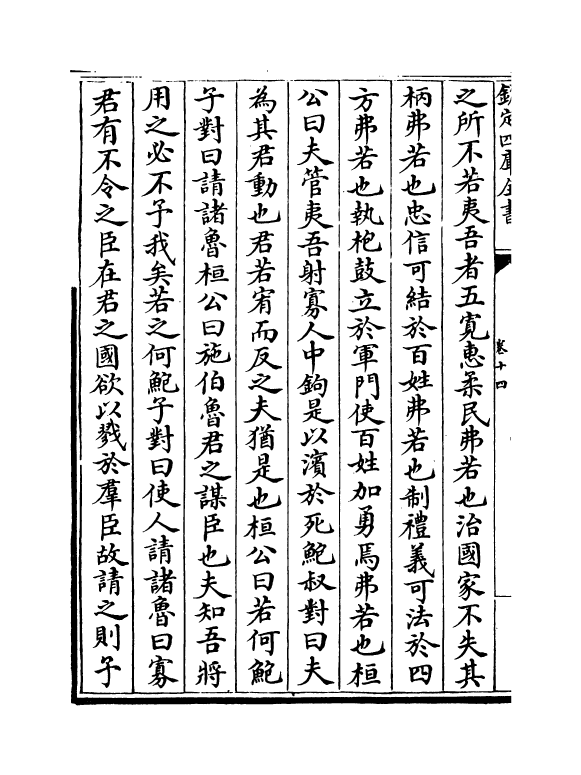 欽定四庫全書
卷十四
之所不若夷吾者五寛惠柔民弗若也治國家不失其
柄弗若也忠信可結於百姓弗若也制禮義可法於四
方弗若也執枹鼓立於軍門使百姓加勇焉弗若也桓
公曰夫管夷吾射寡人中鉤是以濵於死鮑叔對曰夫
為其君動也君若宥而反之夫猶是也桓公曰若何鮑
子對曰請諸魯桓公曰施伯魯君之謀臣也夫知吾將
用之必不予我矣若之何鮑子對曰使人請諸魯曰寡
君有不令之臣在君之國欲以戮於羣臣故請之則予